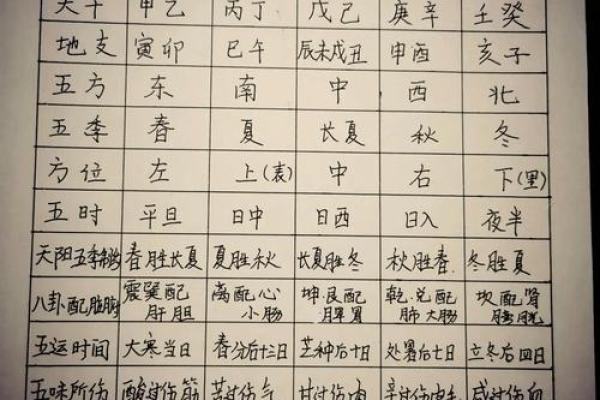 天干 甲乙 丙丁 戊己 庚辛 壬癸
地支 寅卯 巳午 辰未戌丑 申酉 亥子
五方 东 南 中 西 北
五季 春 夏 长夏 秋 冬
方位 左 上(表) 中 右 下(里)
五时 平旦 日中 日西 日入 夜半
天阳五季制约 春胜长夏 夏胜秋 长夏胜冬 秋胜春 冬胜夏
八卦配脏腑 震巽配 离配心 坤艮配 乾兑配 坎配肾
肝胆 小肠 脾胃 肺大肠 膀胱
五运时间 大寒当日 春分后十三日 芒种后十日 处暑后七日 立冬后四日
五味所伤 酸过伤筋 苦过伤气 甘过伤肉 辛过伤皮毛 咸过伤血